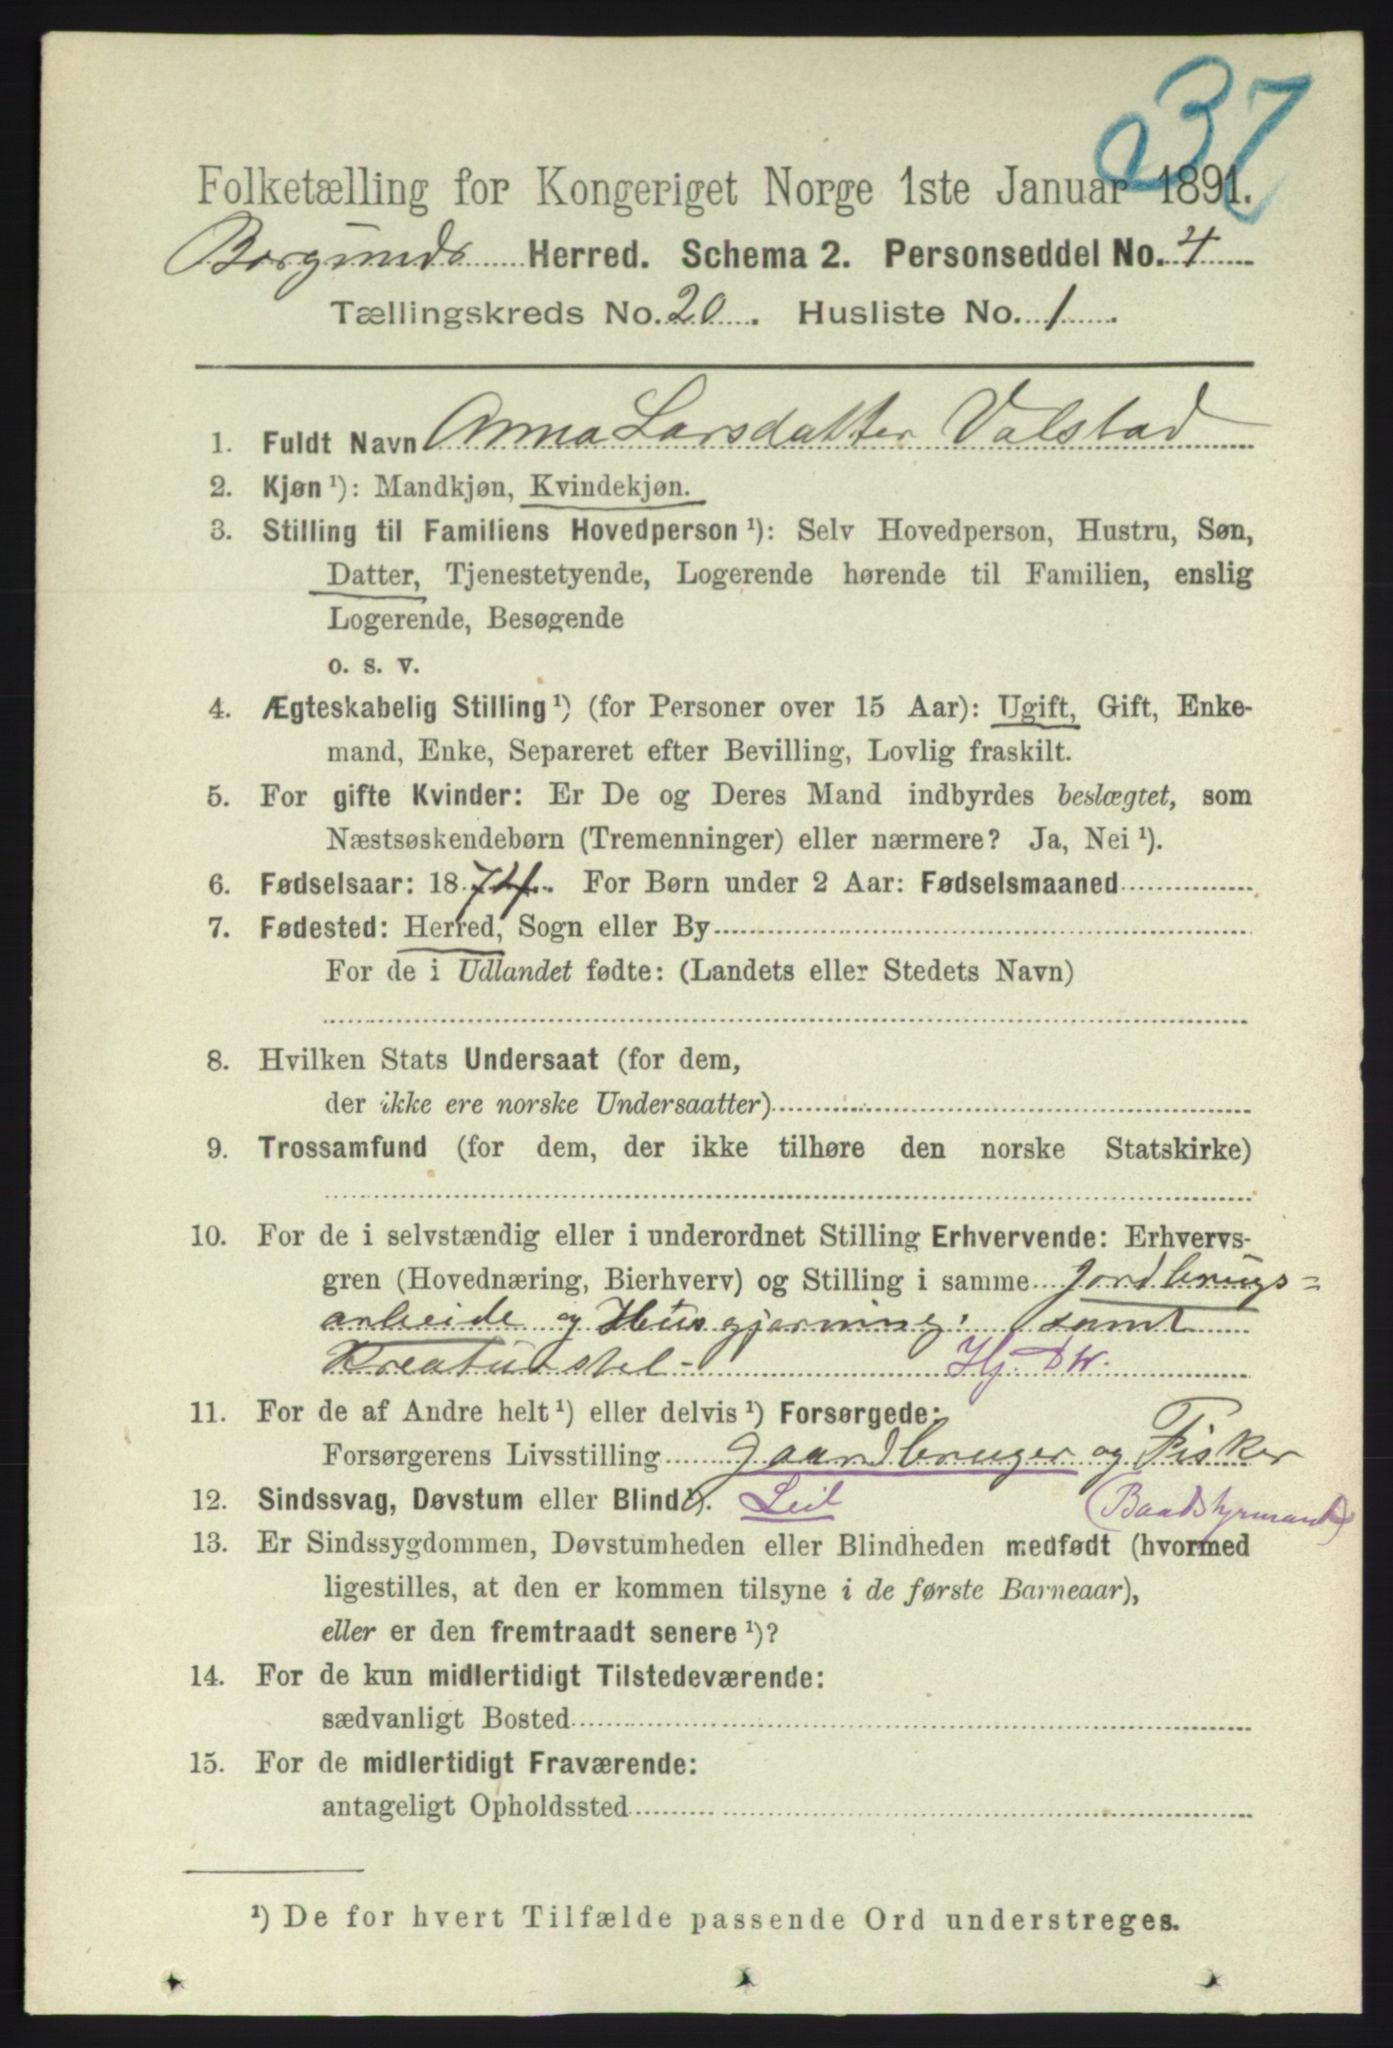 37
Folketælling for Kongeriget Norge 1ste Januar 1891.
Borgunds Herred. Schema 2. Personseddel No. 4
Tællingskreds No. 20. Husliste No. 1.
1. Fuldt Navn Anna Larsdatter Valstad
2. Kjøn ¹): Mandkjøn, Kvindekjøn.
3. Stilling til Familiens Hovedperson ¹): Selv Hovedperson, Hustru, Søn,
Datter, Tjenestetyende, Logerende hørende til Familien, enslig
Logerende, Besøgende
o. s. v.
4. Ægteskabelig Stilling ¹) (for Personer over 15 Aar): Ugift, Gift, Enke-
mand, Enke, Separeret efter Bevilling, Lovlig fraskilt.
5. For gifte Kvinder: Er De og Deres Mand indbyrdes beslægtet, som
Næstsøskendebørn (Tremenninger) eller nærmere? Ja, Nei ¹).
6. Fødselsaar: 1874. For Børn under 2 Aar: Fødselsmaaned
7. Fødested: Herred, Sogn eller By
For de i Udlandet fødte: (Landets eller Stedets Navn)
8. Hvilken Stats Undersaat (for dem,
der ikke ere norske Undersaatter)
9. Trossamfund (for dem, der ikke tilhøre den norske Statskirke)
10. For de i selvstændig eller i underordnet Stilling Erhvervende: Erhvervs-
gren (Hovednæring, Bierhverv) og Stilling i samme Jordbrugs=
arbeide og Husgjerning, samt
Kreaturstel - Hj. DW.
11. For de af Andre helt ¹) eller delvis ¹) Forsørgede:
Forsørgerens Livsstilling gaardbruger og Fisker
12. Sindssvag, Døvstum eller Blind ¹). Leil (Baadstyrmand)
13. Er Sindssygdommen, Døvstumheden eller Blindheden medfødt (hvormed
ligestilles, at den er kommen tilsyne i de første Barneaar),
eller er den fremtraadt senere ¹)?
14. For de kun midlertidigt Tilstedeværende:
sædvanligt Bosted
15. For de midlertidigt Fraværende:
antageligt Opholdssted
¹) De for hvert Tilfælde passende Ord understreges.